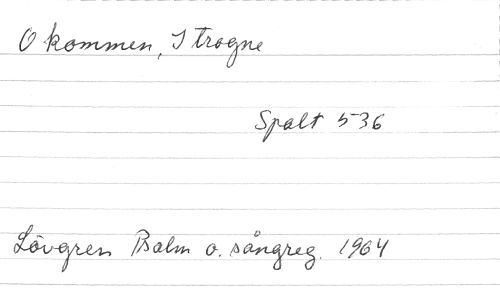 O kommen, I trogne
Spalt 536
Lövgren Psalm o. sångreg. 1964